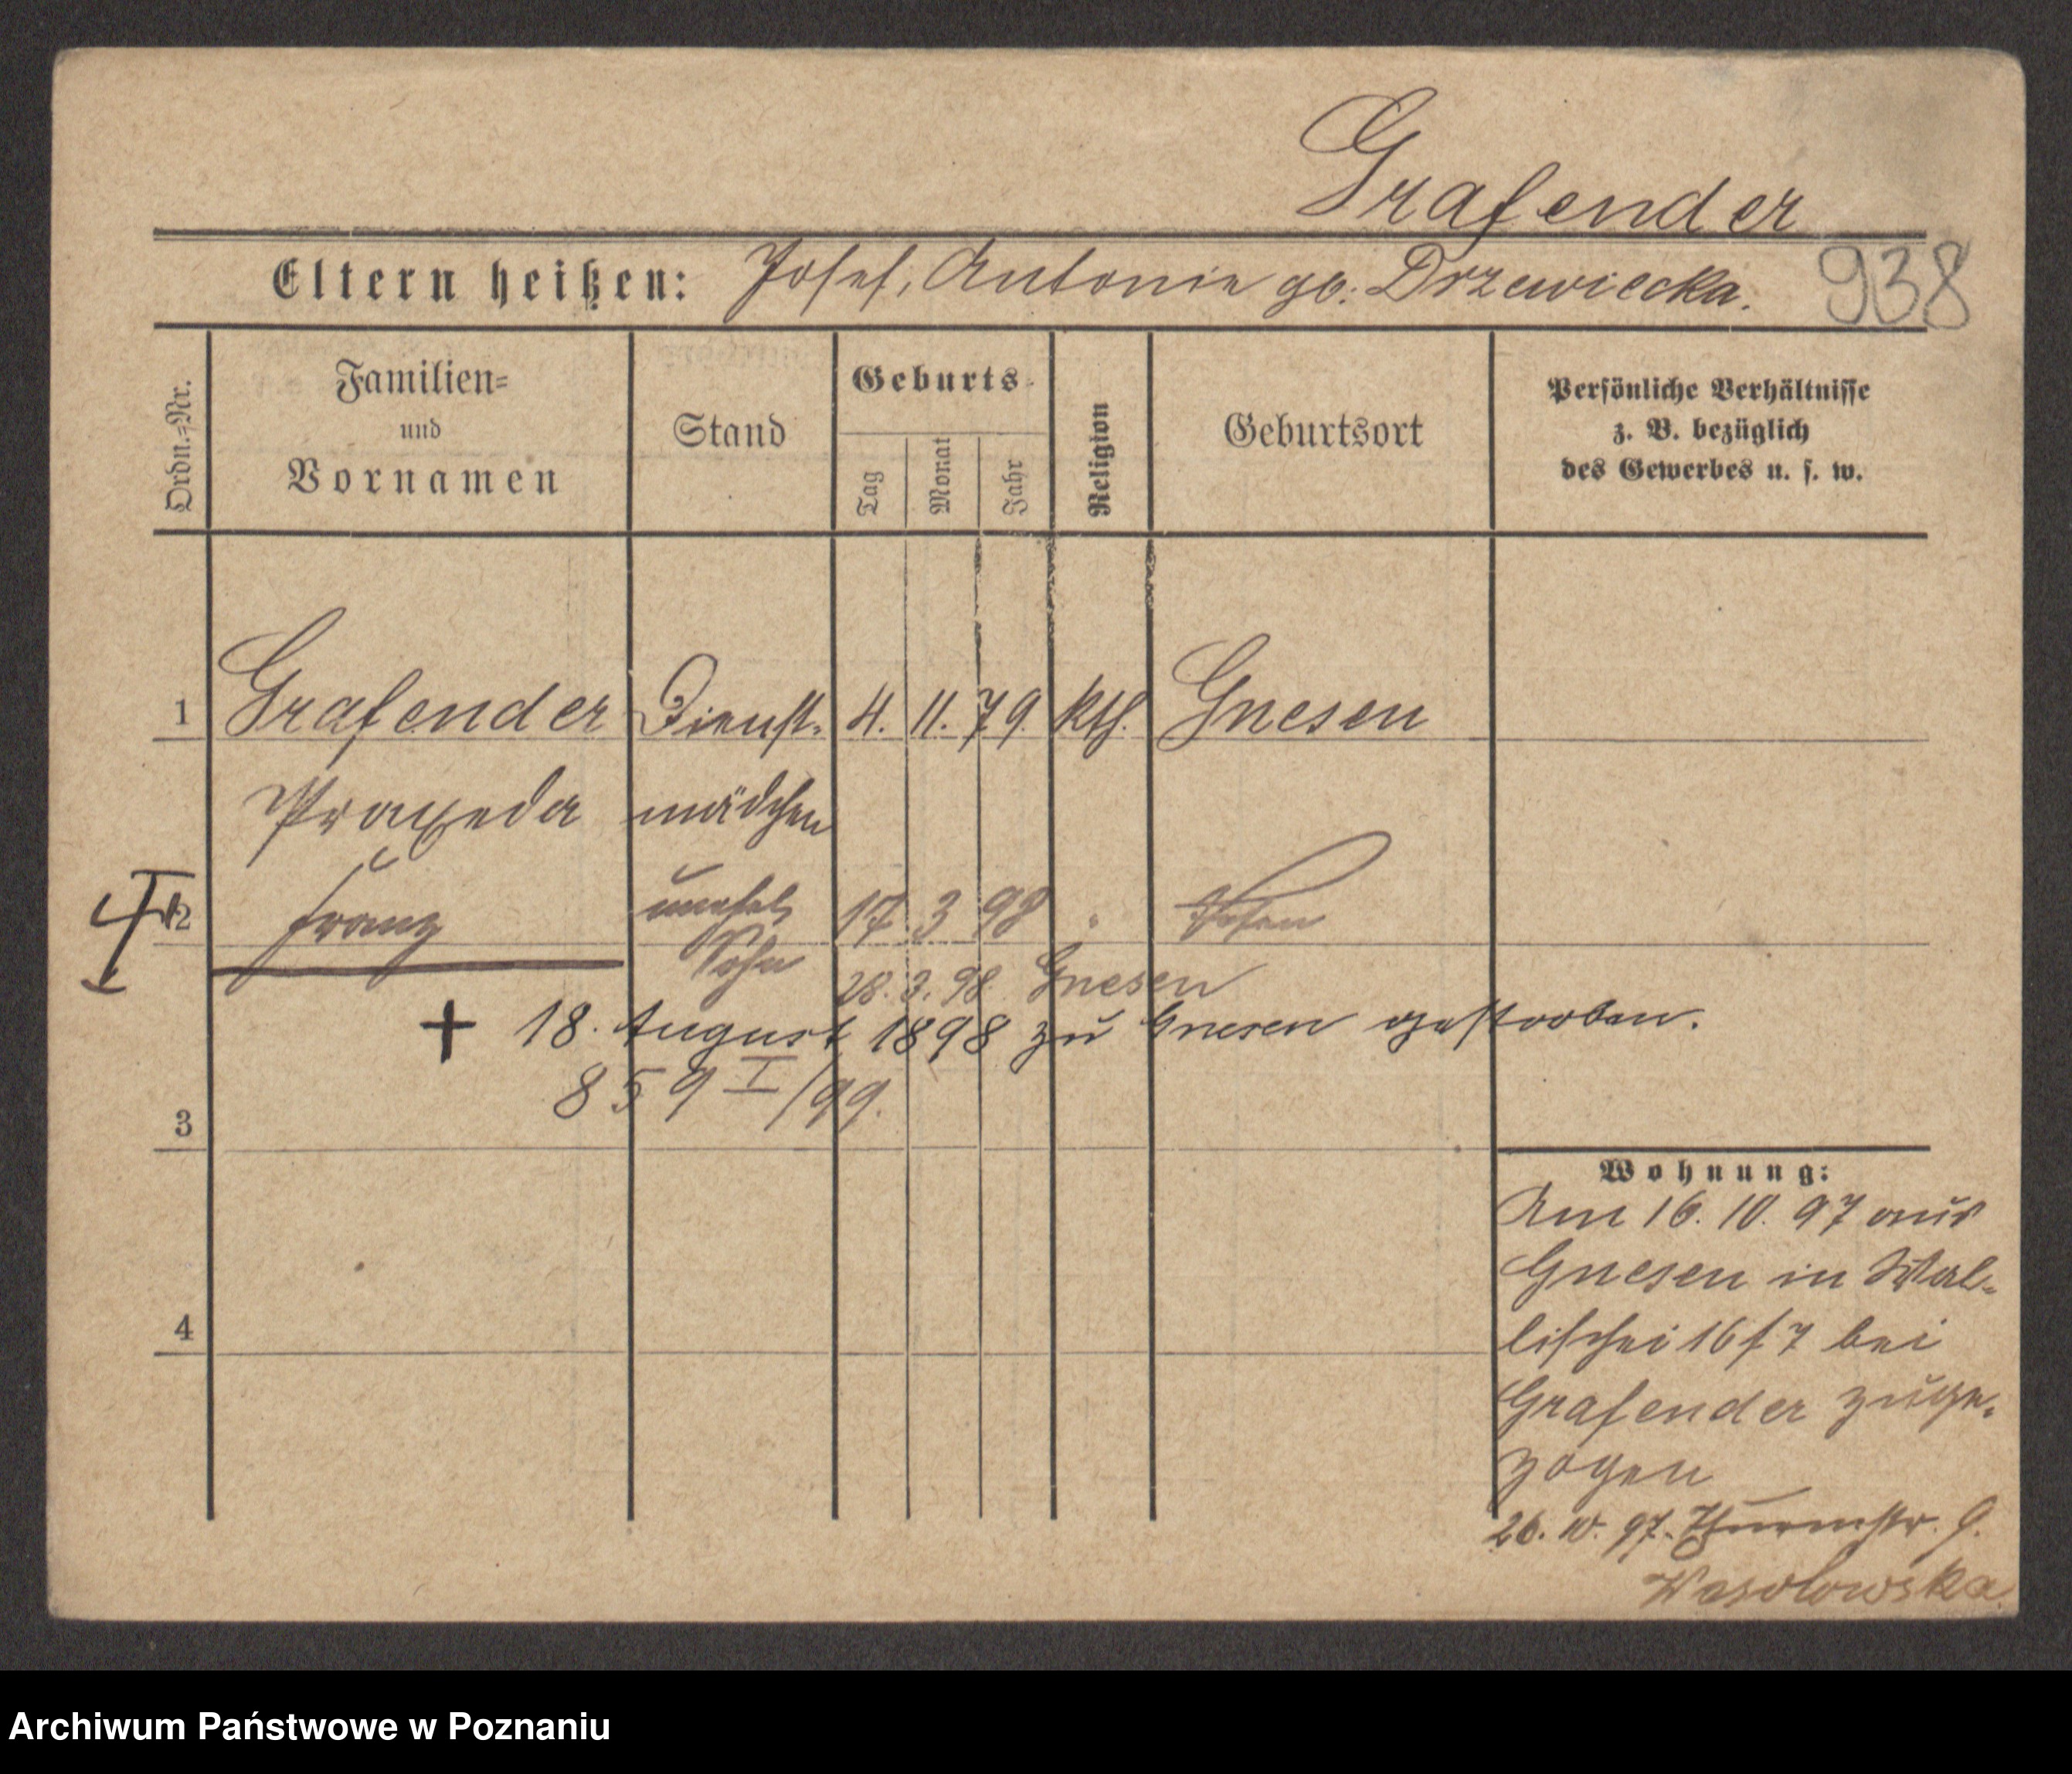 Grafender
Eltern heißen: Josef, Antonie gb. Drzewiecka.
938
Ordn.-Nr.
Familien-
und
Vornamen
Stand
Geburts-
Tag
Monat
Jahr
Religion
Geburtsort
Persönliche Verhältnisse
z. B. bezüglich
des Gewerbes u. s. w.
1 Grafender Dienst- 4. 11. 79. kth. Gnesen
Praxeda mädchen
2 Franz unehel. 17 3 98 " Posen
Sohn
28. 3. 98 Gnesen
+ 18. August 1898 zu Gnesen gestorben.
859 I/99.
3
4
Wohnung:
Am 16. 10. 97 aus
Gnesen in Wal-
lischei 16/7 bei
Grafender zuge-
zogen
26. 10. 97. Thurmstr. 9.
Wesolowska
Archiwum Państwowe w Poznaniu